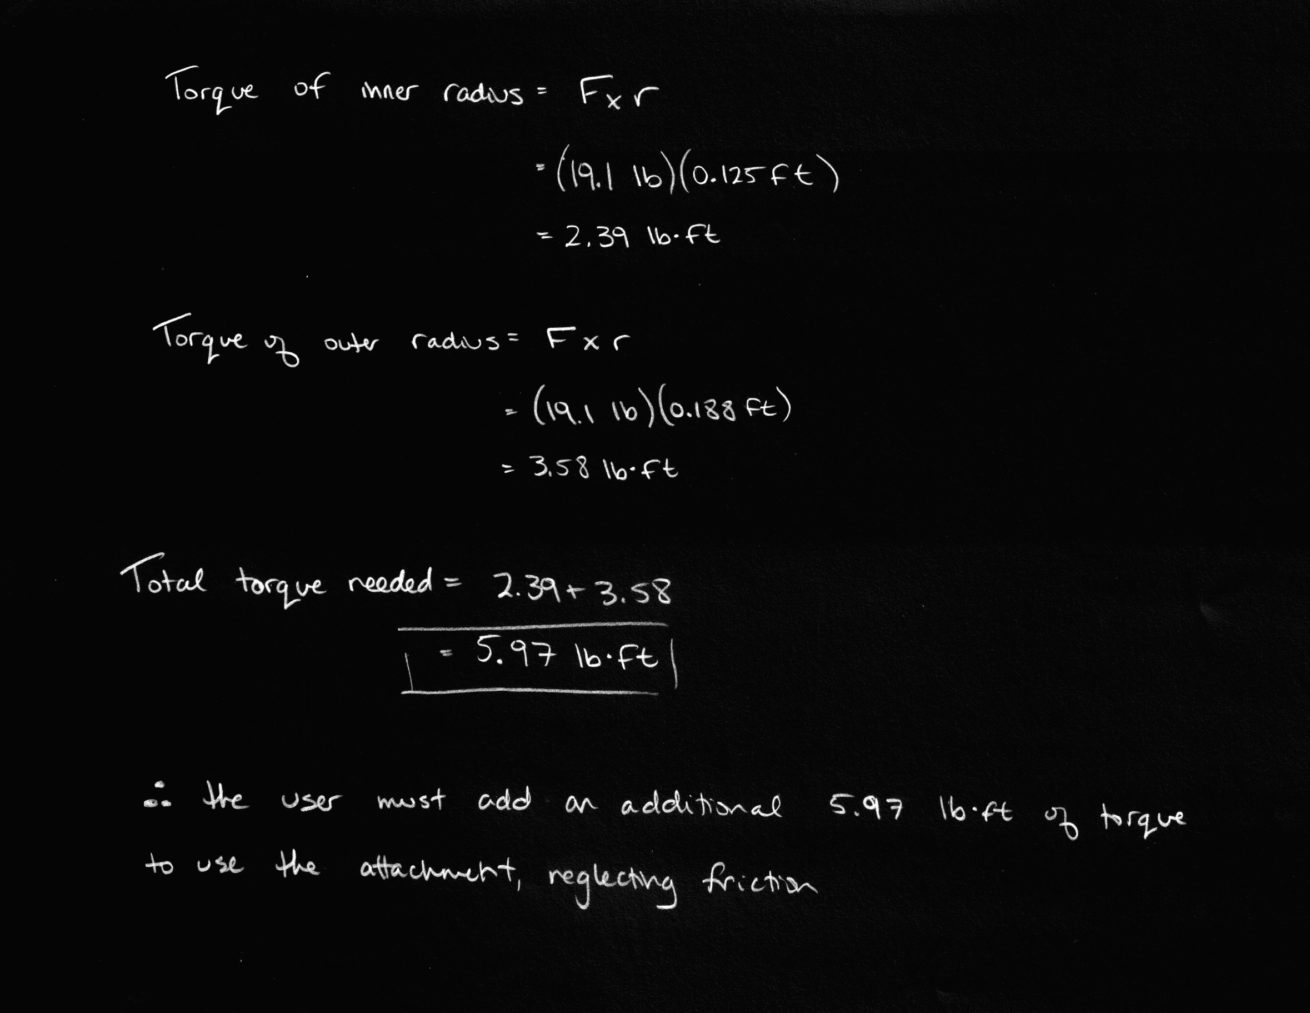 Torque of inner radius = F x r
= (19.1 lb)(0.125 ft)
= 2.39 lb·ft
Torque of outer radius = F x r
= (19.1 lb)(0.188 ft)
= 3.58 lb·ft
Total torque needed = 2.39 + 3.58
= 5.97 lb·ft
∴ the user must add an additional 5.97 lb·ft of torque
to use the attachment, neglecting friction